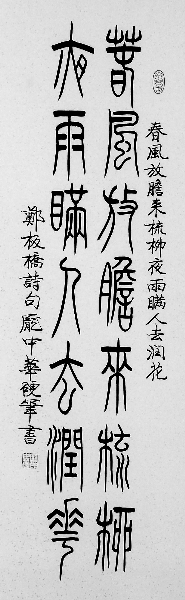 春風放膽来梳柳夜雨瞞人去润花
春風放膽來梳柳
夜雨瞞人去潤華
鄭板橋詩句龐中華硬筆書